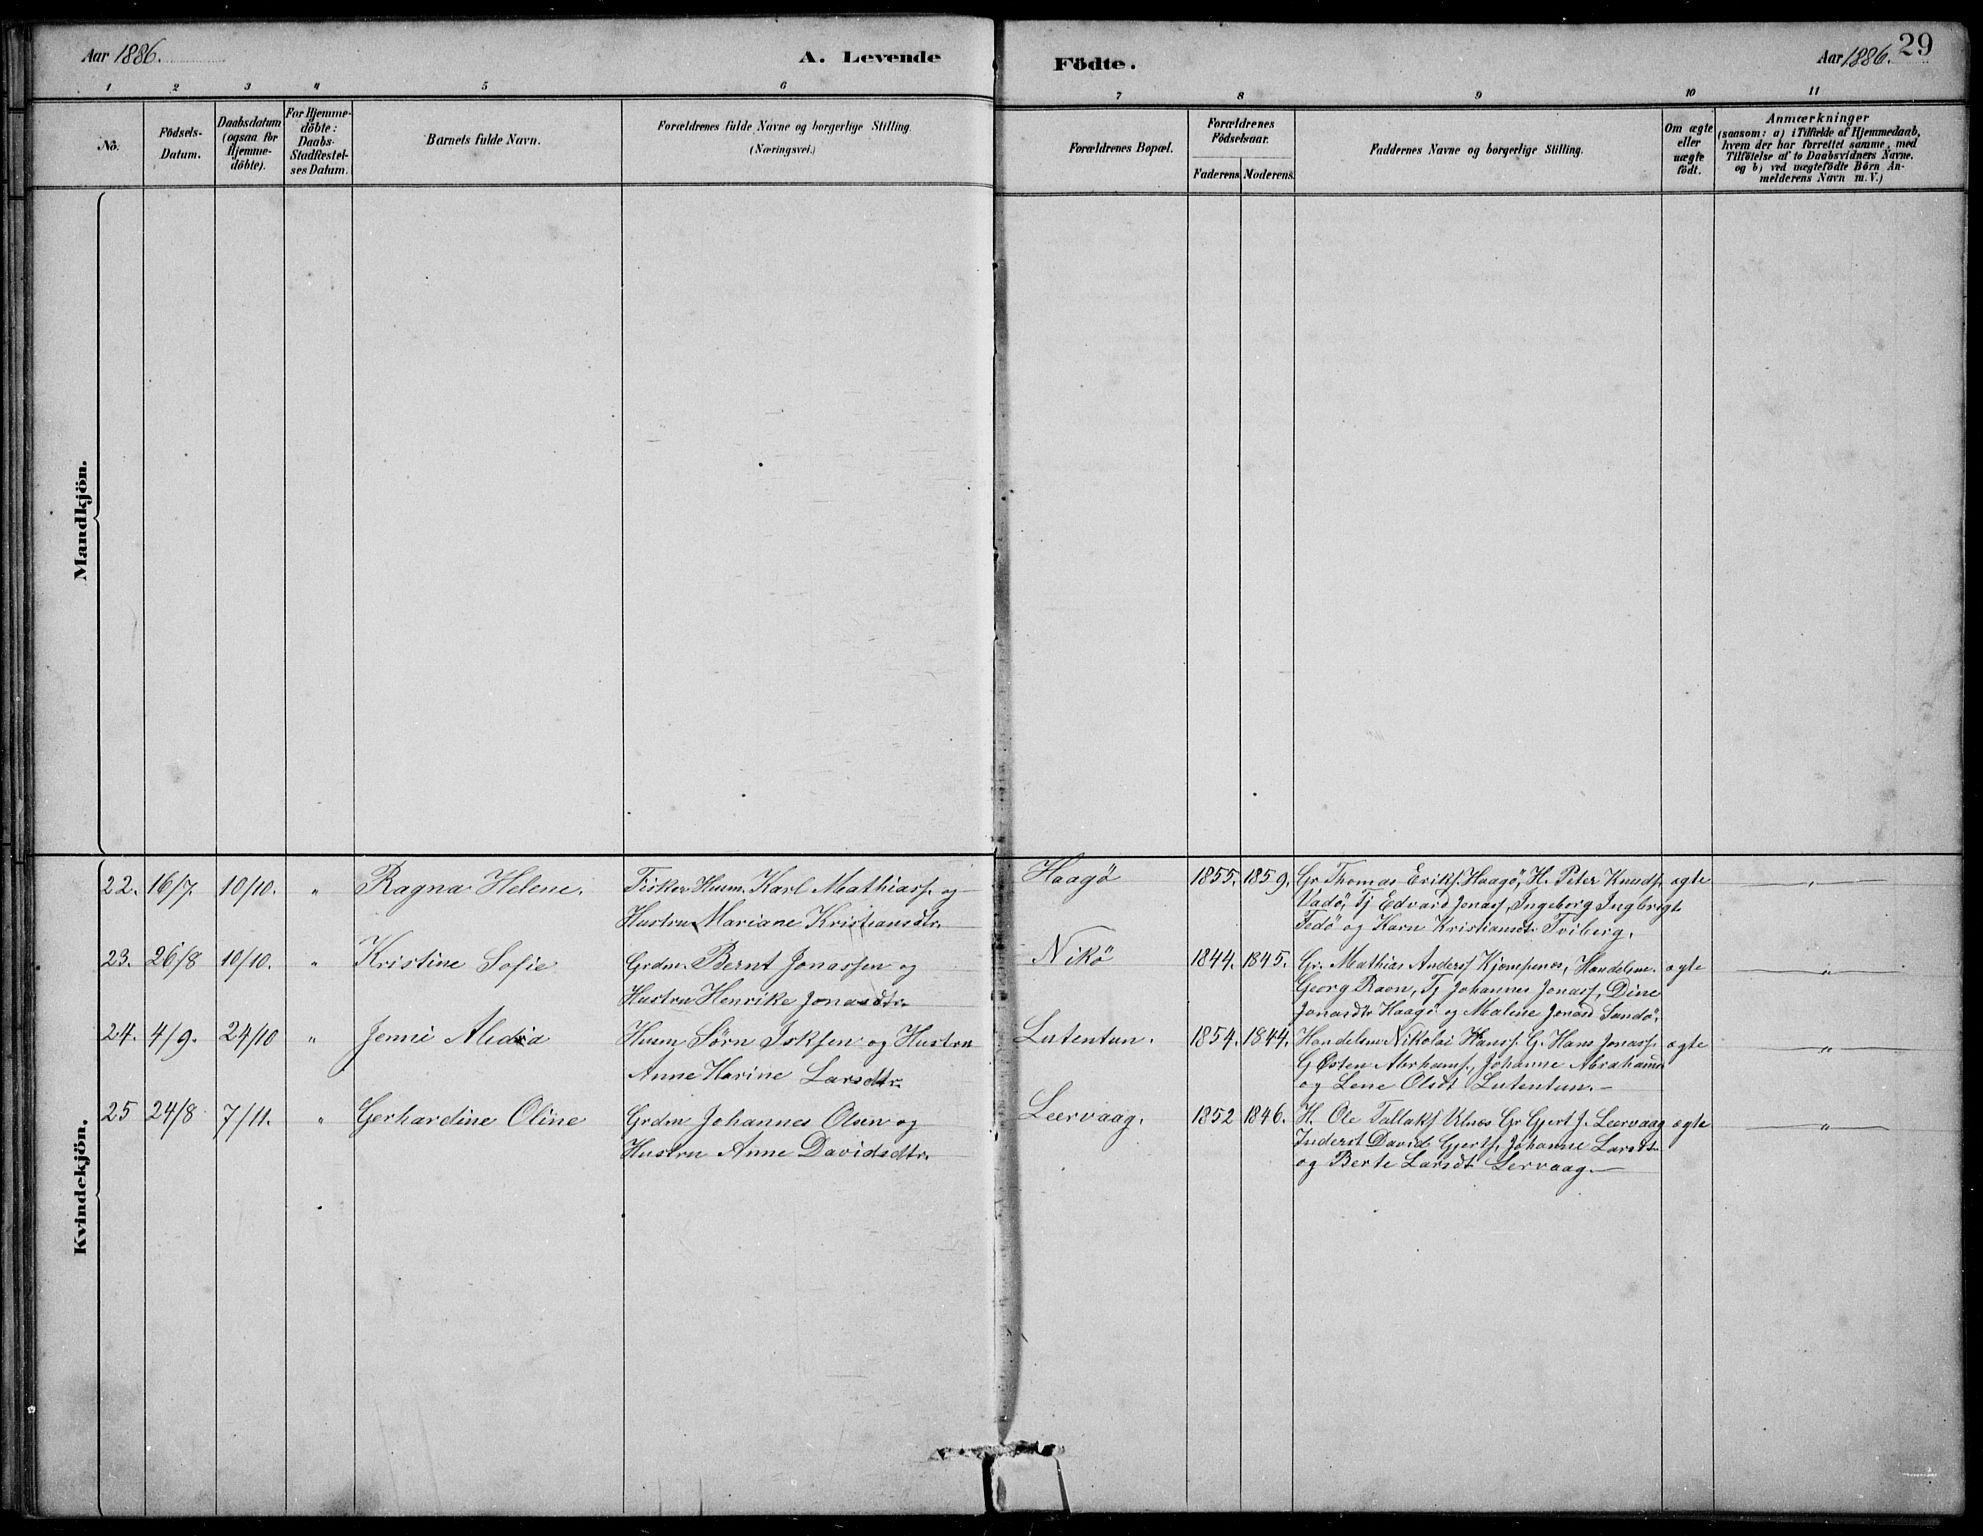 Aar 1886. A. Levende Födte. Aar 1886. 29
1 2 3 4 5 6 7 8 9 10 11
No. Födsels-Datum. Daabsdatum (ogsaa for Hjemmedöbte). For Hjemmedöbte: Daabs-Stadfæstelses Datum. Barnets fulde Navn. Forældrenes fulde Navne og borgerlige Stilling. (Næringsvei.) Forældrenes Bopæl. Forældrenes Födselsaar. Faderens. Moderens. Faddernes Navne og borgerlige Stilling. Om ægte eller uægte födt. Anmærkninger (saasom: a) i Tilfælde af Hjemmedaab, hvem der har forrettet samme, med Tilföielse af to Daabsvidners Navne. og b) ved uægtefödte Börn Anmelderens Navn m. V.)
Mandkjön.
Kvindekjön.
22. 16/7. 10/10. " Ragna Helene. Fisker Husm. Karl Mathiass. og Haagö 1855. 1859. Gr. Thomas Eriks. Haagö, H. Peter Knuds. ægte "
Hustru Mariane Kristiansdtr. Vadö, Tj Edvard Jonass, Ingeborg Ingbrigt
Fedö og Karn Kristiansdt. Tviberg.
23. 26/8 10/10. " Kristine Sofie Grdm. Bernt Jonassen og Nikö 1844. 1845. Gr. Mathias Anders Kjempenes, Handelsm. ægte "
Hustru Henrike Jonasdtr. Georg Ravn, Tj Johannes Jonass, Dine
Jonasdtr Haagö og Malene Jonasd Sandö.
24. 4/9. 24/10 " Jenni Husm Sörn Isksen og Hustru Lutentun. 1854. 1844. Handelsm Nikolai Hanss. G. Hans Jonass. ægte "
Anne Karine Larsdtr. G Østen Abrhams., Johanne Abrahamsd
og Lene Olsdt Lutentun.
25 24/8 7/11. " Gerhardine Oline Grdm Johannes Olsen og Leervaag. 1852 1846. H. Ole Tallaks Ulnes Gr Gjert J. Leervaag ægte "
Hustru Anne Davidsdtr. Inderst David Gjerts. Johanne Larsdt.
og Berte Larsdt Lervaag.